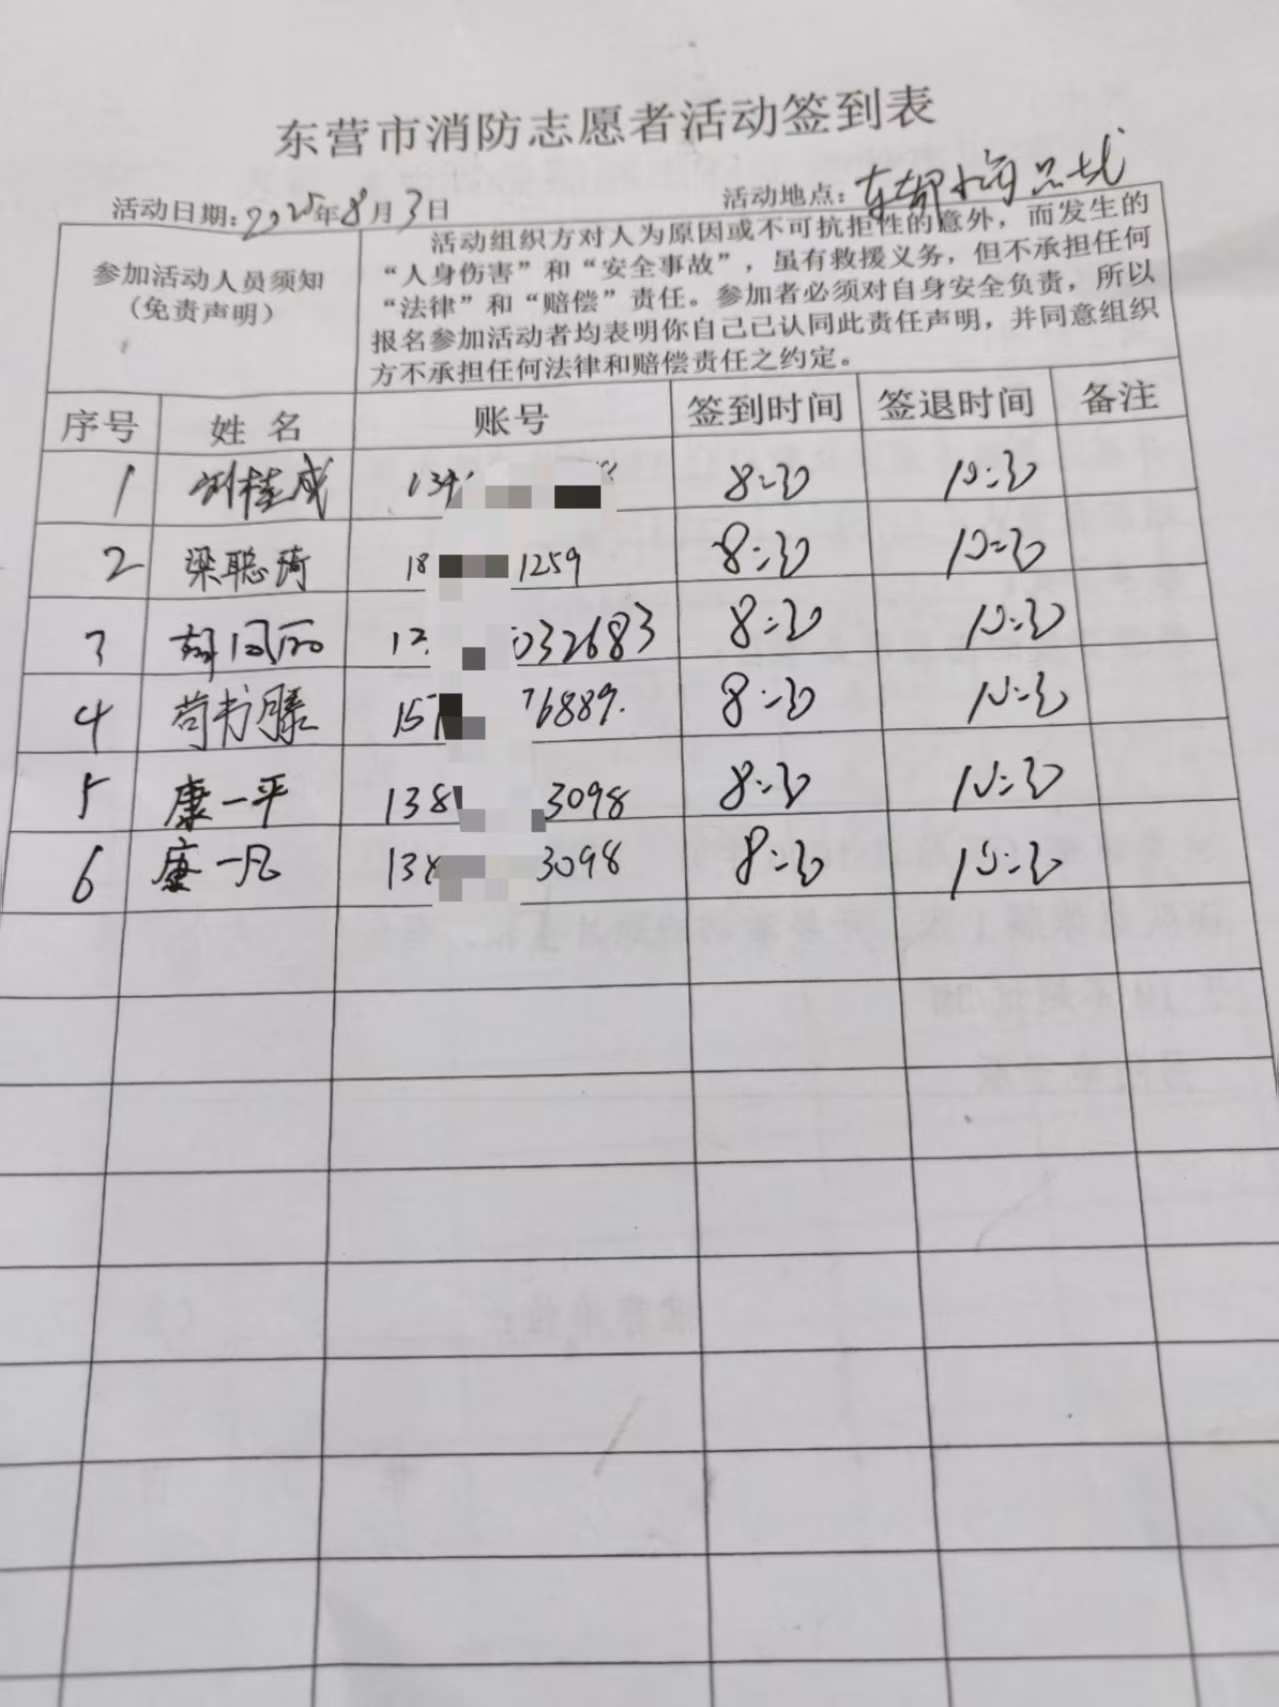 东营市消防志愿者活动签到表
活动日期:2025年8月3日 活动地点:
参加活动人员须知
(免责声明)
活动组织方对人为原因或不可抗拒性的意外，而发生的
“人身伤害”和“安全事故”，虽有救援义务，但不承担任何
“法律”和“赔偿”责任。参加者必须对自身安全负责，所以
报名参加活动者均表明你自己已认同此责任声明，并同意组织
方不承担任何法律和赔偿责任之约定。
序号 姓名 账号 签到时间 签退时间 备注
1 刘桂成 134 8:30 10:30
2 梁聪琦 18 1259 8:30 10:30
3 胡凤丽 032683 8:30 10:30
4 苟书滕 15 76889. 8:30 10:30
5 康一平 138 3098 8:30 10:30
6 康一凡 138 3098 8:30 10:30